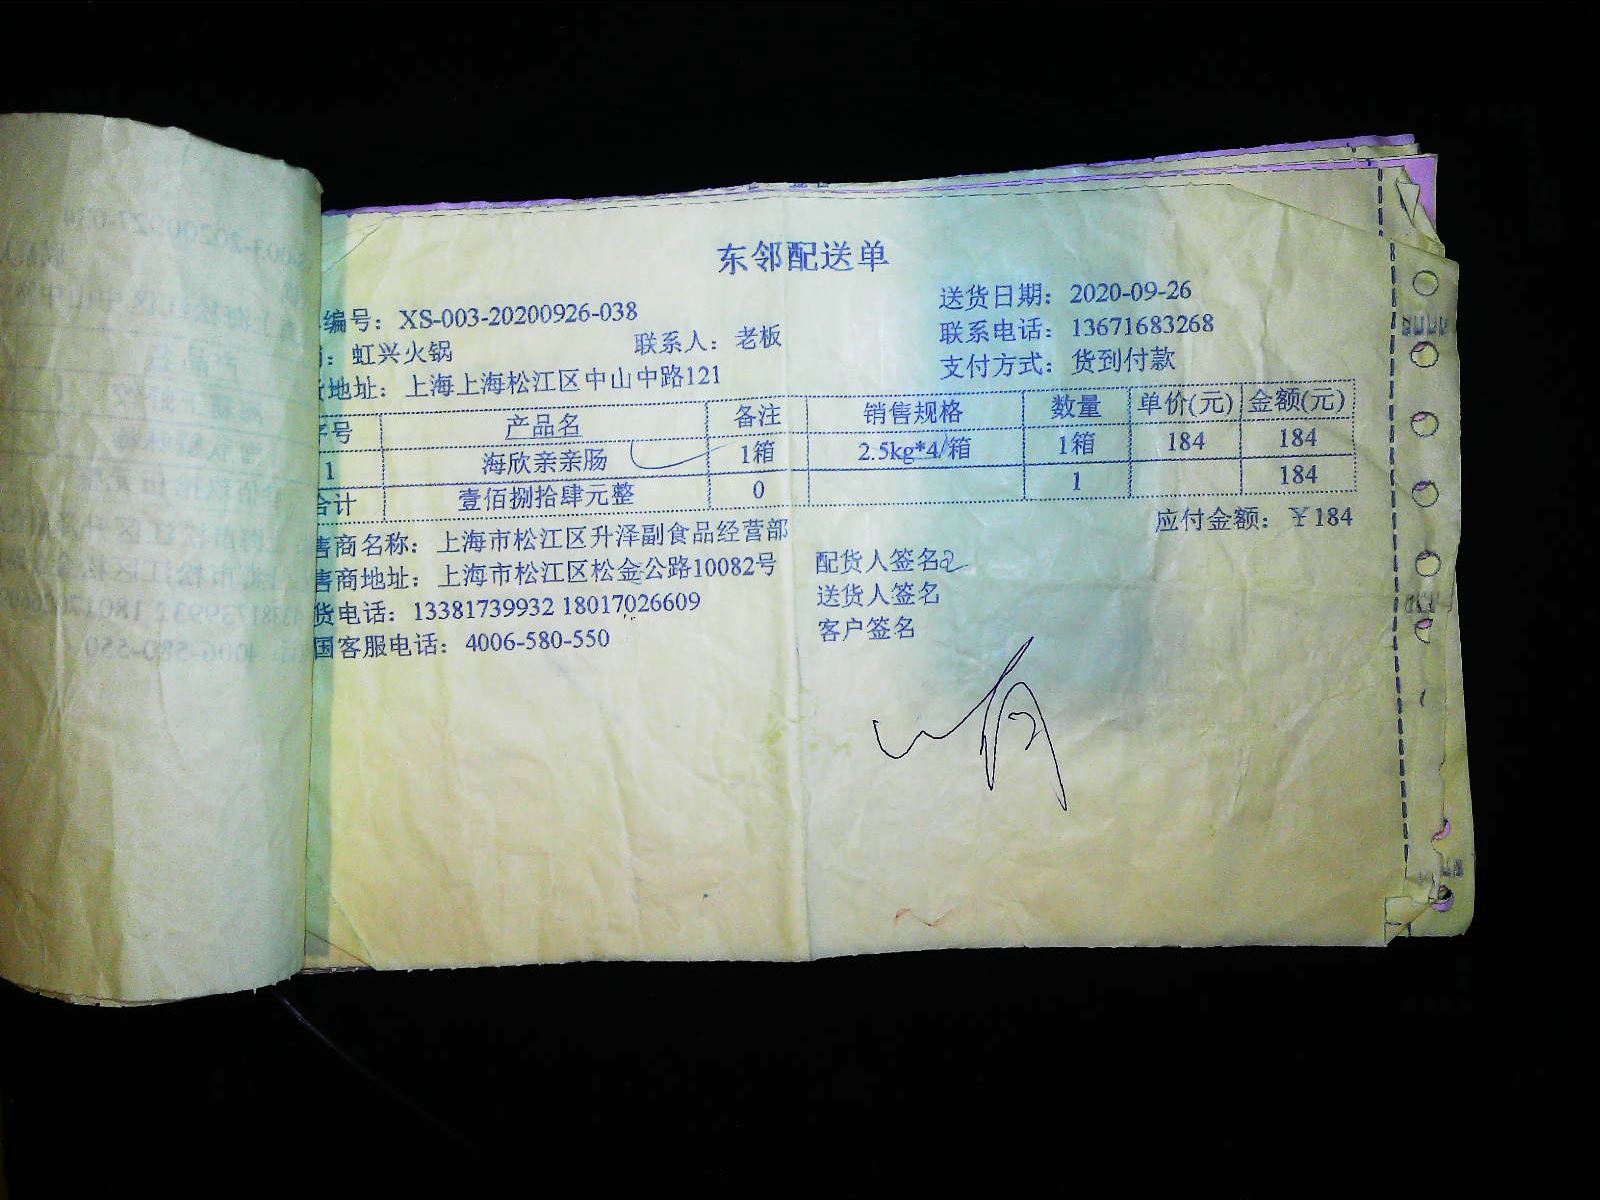 东邻配送单
编号：XS-003-20200926-038 送货日期：2020-09-26
：虹兴火锅 联系人：老板 联系电话：13671683268
地址：上海上海松江区中山中路121 支付方式：货到付款
序号 产品名 备注 销售规格 数量 单价(元) 金额(元)
1 海欣亲亲肠 1箱 2.5kg*4/箱 1箱 184 184
合计 壹佰捌拾肆元整 0 1 184
售商名称：上海市松江区升泽副食品经营部 应付金额：￥184
售商地址：上海市松江区松金公路10082号 配货人签名
货电话：13381739932 18017026609 送货人签名
国客服电话：4006-580-550 客户签名